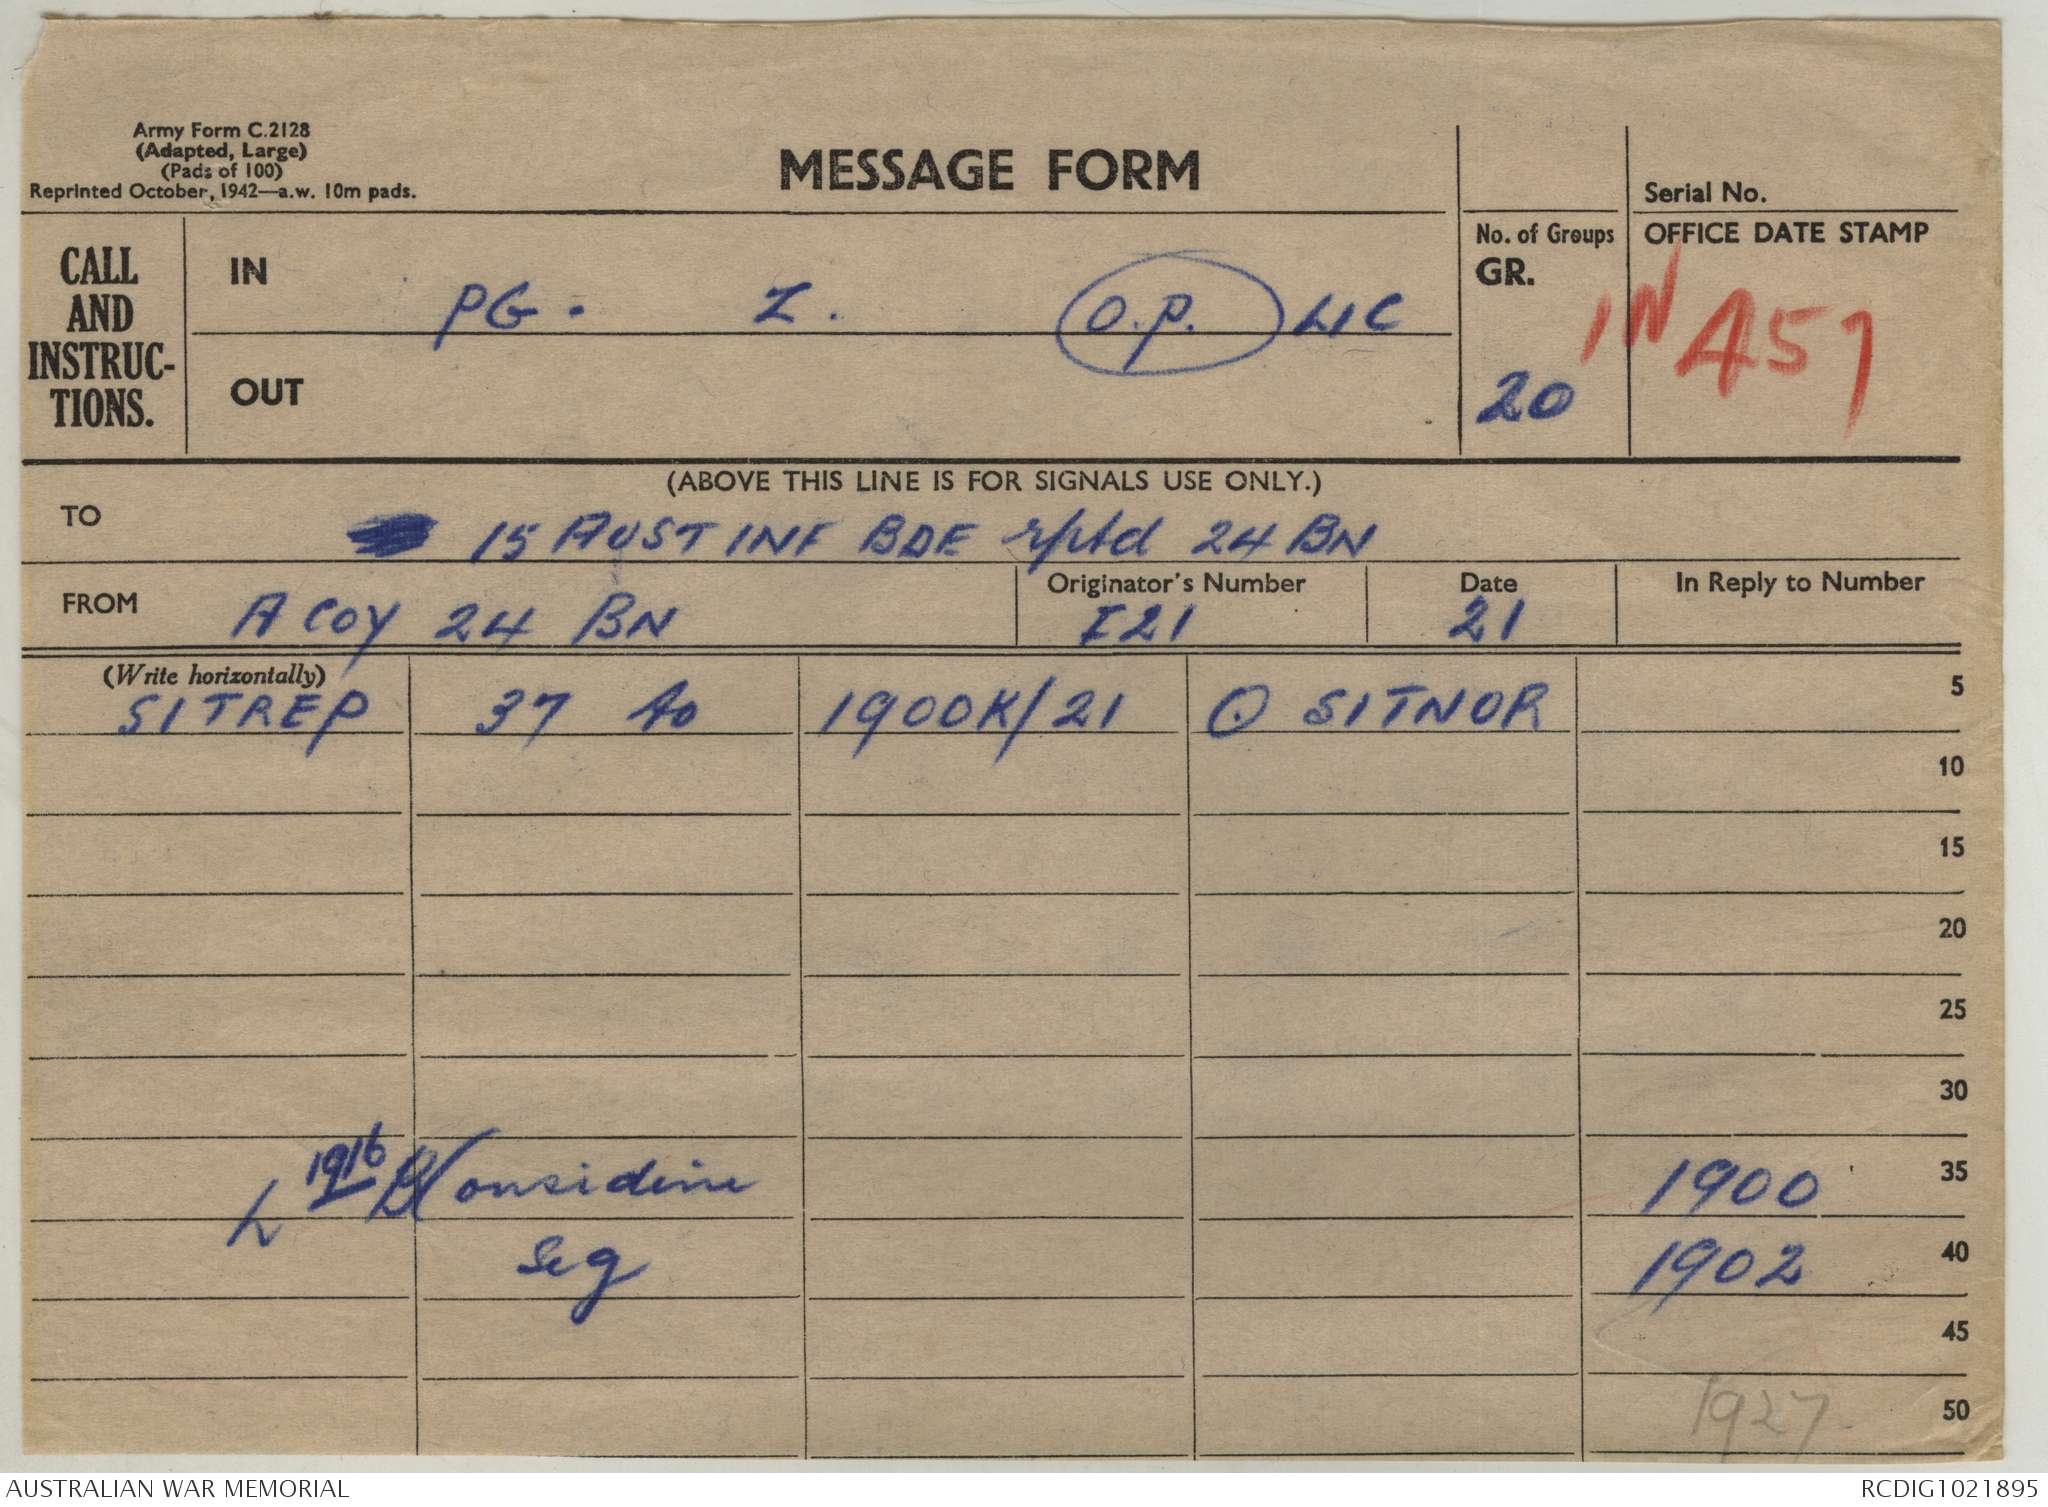 Army Form C.2128
(Adapted, Large)
(Pads of 100)
Reprinted October, 1942—a.w. 10m pads.
MESSAGE FORM
Serial No.
CALL AND INSTRUC-TIONS.
IN PG. Z. O.P. LIC
OUT
No. of Groups
GR.
20
OFFICE DATE STAMP
IN 457
(ABOVE THIS LINE IS FOR SIGNALS USE ONLY.)
TO 15 AUST INF BDE rptd 24 BN
FROM A COY 24 BN
Originator's Number
I21
Date
21
In Reply to Number
(Write horizontally)
SITREP 37 to 1900K/21 O SITNOR 5
10
15
20
25
30
1916 Considine 1900 35
1902 40
45
1927 50
AUSTRALIAN WAR MEMORIAL
RCDIG1021895